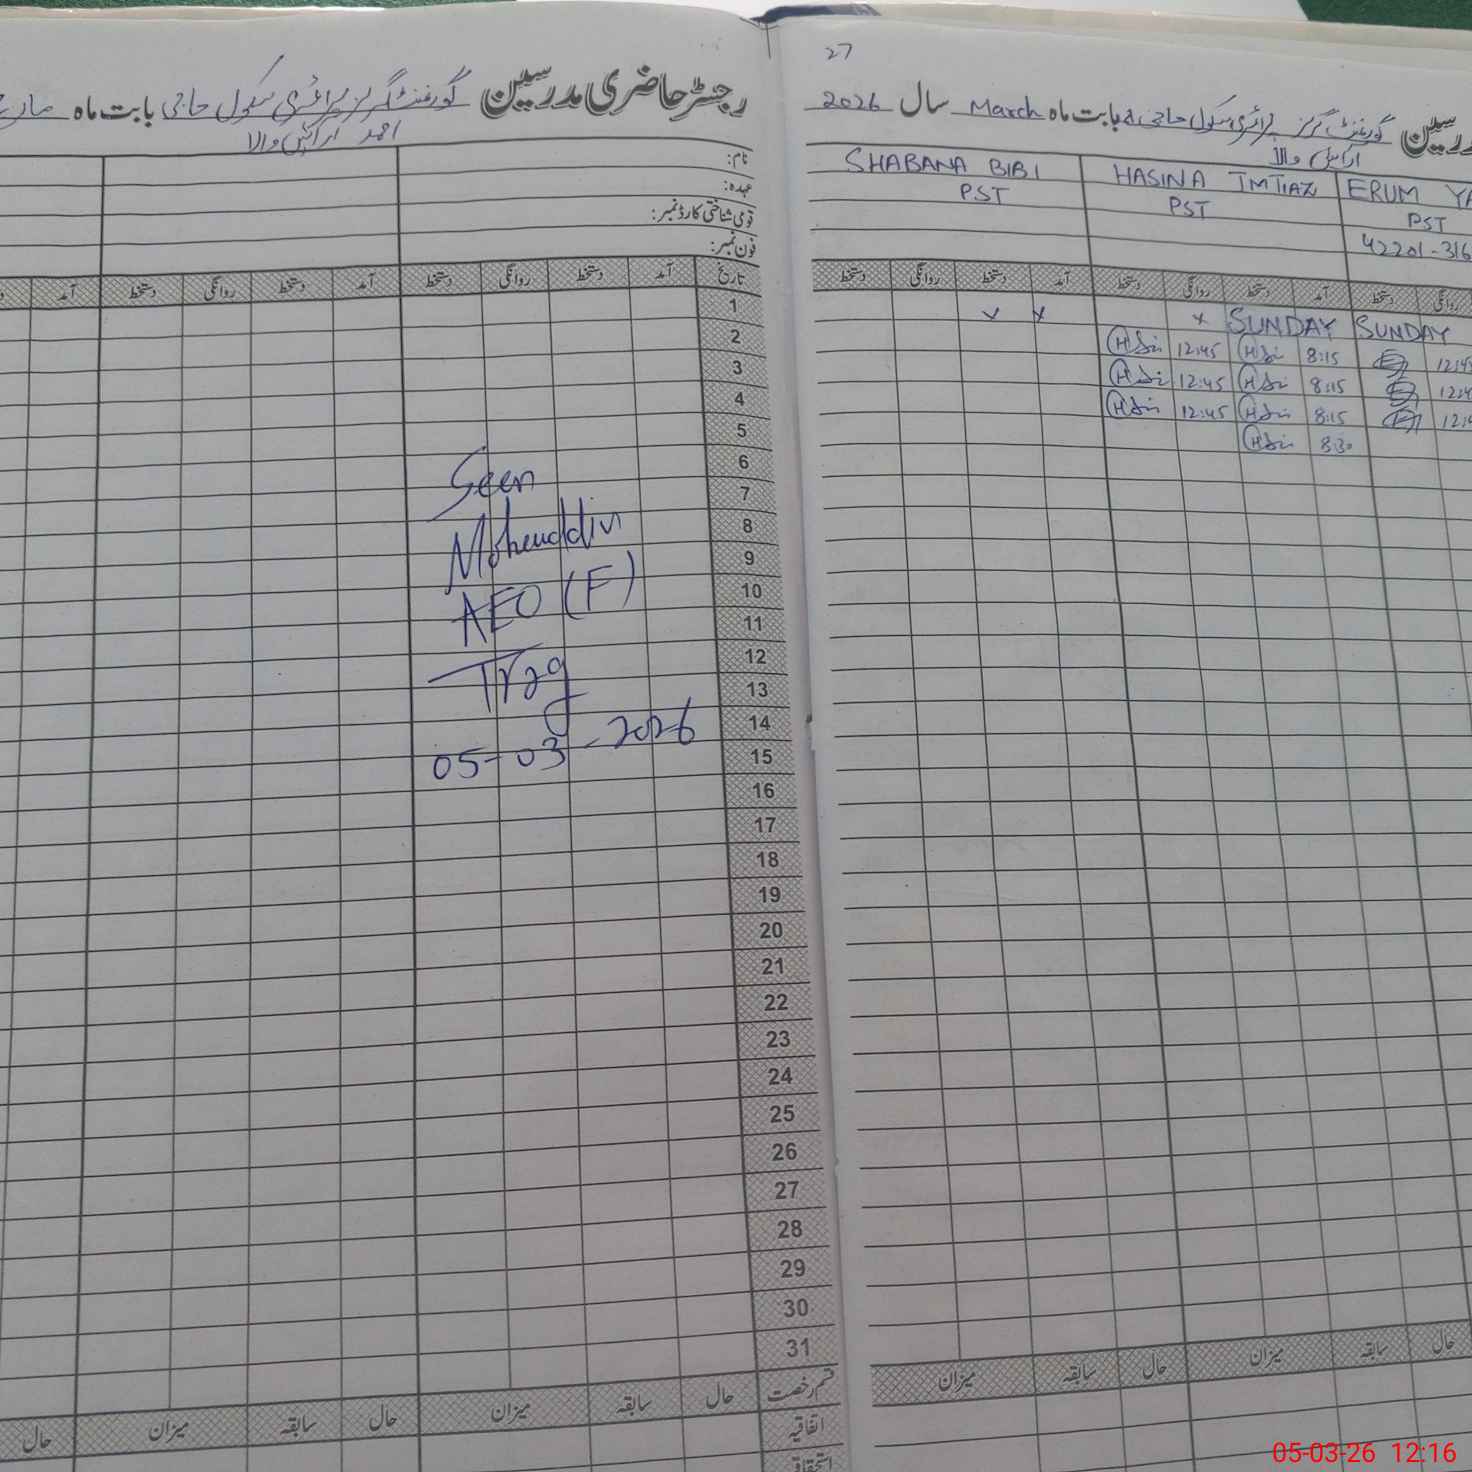 رجسٹر حاضری مدرسین گورنمنٹ گرلز پرائمری سکول حاجی بابت ماہ مارچ
احمد ارائیں والا
نام:
عہدہ:
قومی شناختی کارڈ نمبر:
فون نمبر:
تاریخ آمد دستخط روانگی دستخط آمد دستخط روانگی دستخط آمد
1
2
3
4
5
6
7
8
9
10
11
12
13
14
15
16
17
18
19
20
21
22
23
24
25
26
27
28
29
30
31
Seen
Moheuddin
AEO (F)
05-03-2026
قسم رخصت حال سابقہ میزان حال سابقہ میزان حال
اتفاقیہ
استحقاقیہ
27
گورنمنٹ گرلز پرائمری سکول حاجی بابت ماہ March سال 2026
ارائیں والا
SHABANA BIBI HASINA IMTIAZ ERUM
PST PST PST
42201-316
روانگی دستخط آمد دستخط روانگی دستخط آمد دستخط روانگی دستخط
x x x SUNDAY SUNDAY
12:45 8:15
12:45 8:15
12:45 8:15
8:30
حال سابقہ میزان حال سابقہ میزان
05-03-26 12:16